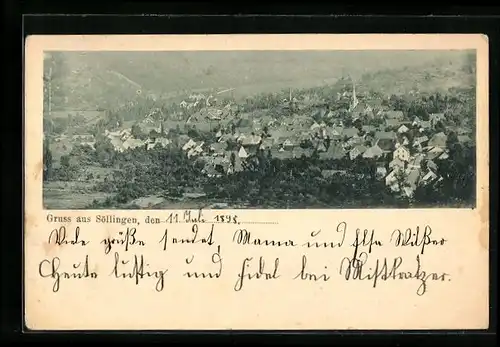 Gruss aus Söllingen, den 11 Juli 1898.
Viele grüße sendet Mama und Elsa
Heute lustig und fidel bei Mistkratzer.